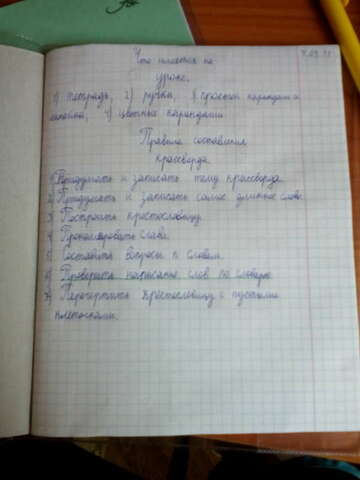 Что имеется на
уроке.
1) тетрадь, 2) ручка, 3) простой карандаш и
линейка, 4) цветные карандаши
Правила составления
кроссворда.
1 Придумать и записать тему кроссворда.
2 Придумать и записать самое длинное слово.
3 Построить крестословицу.
4 Пронумеровать слова.
5 Составить вопросы к словам.
6 Проверить написание слов по словарю.
7 Перечертить крестословицу с пустыми
клеточками.